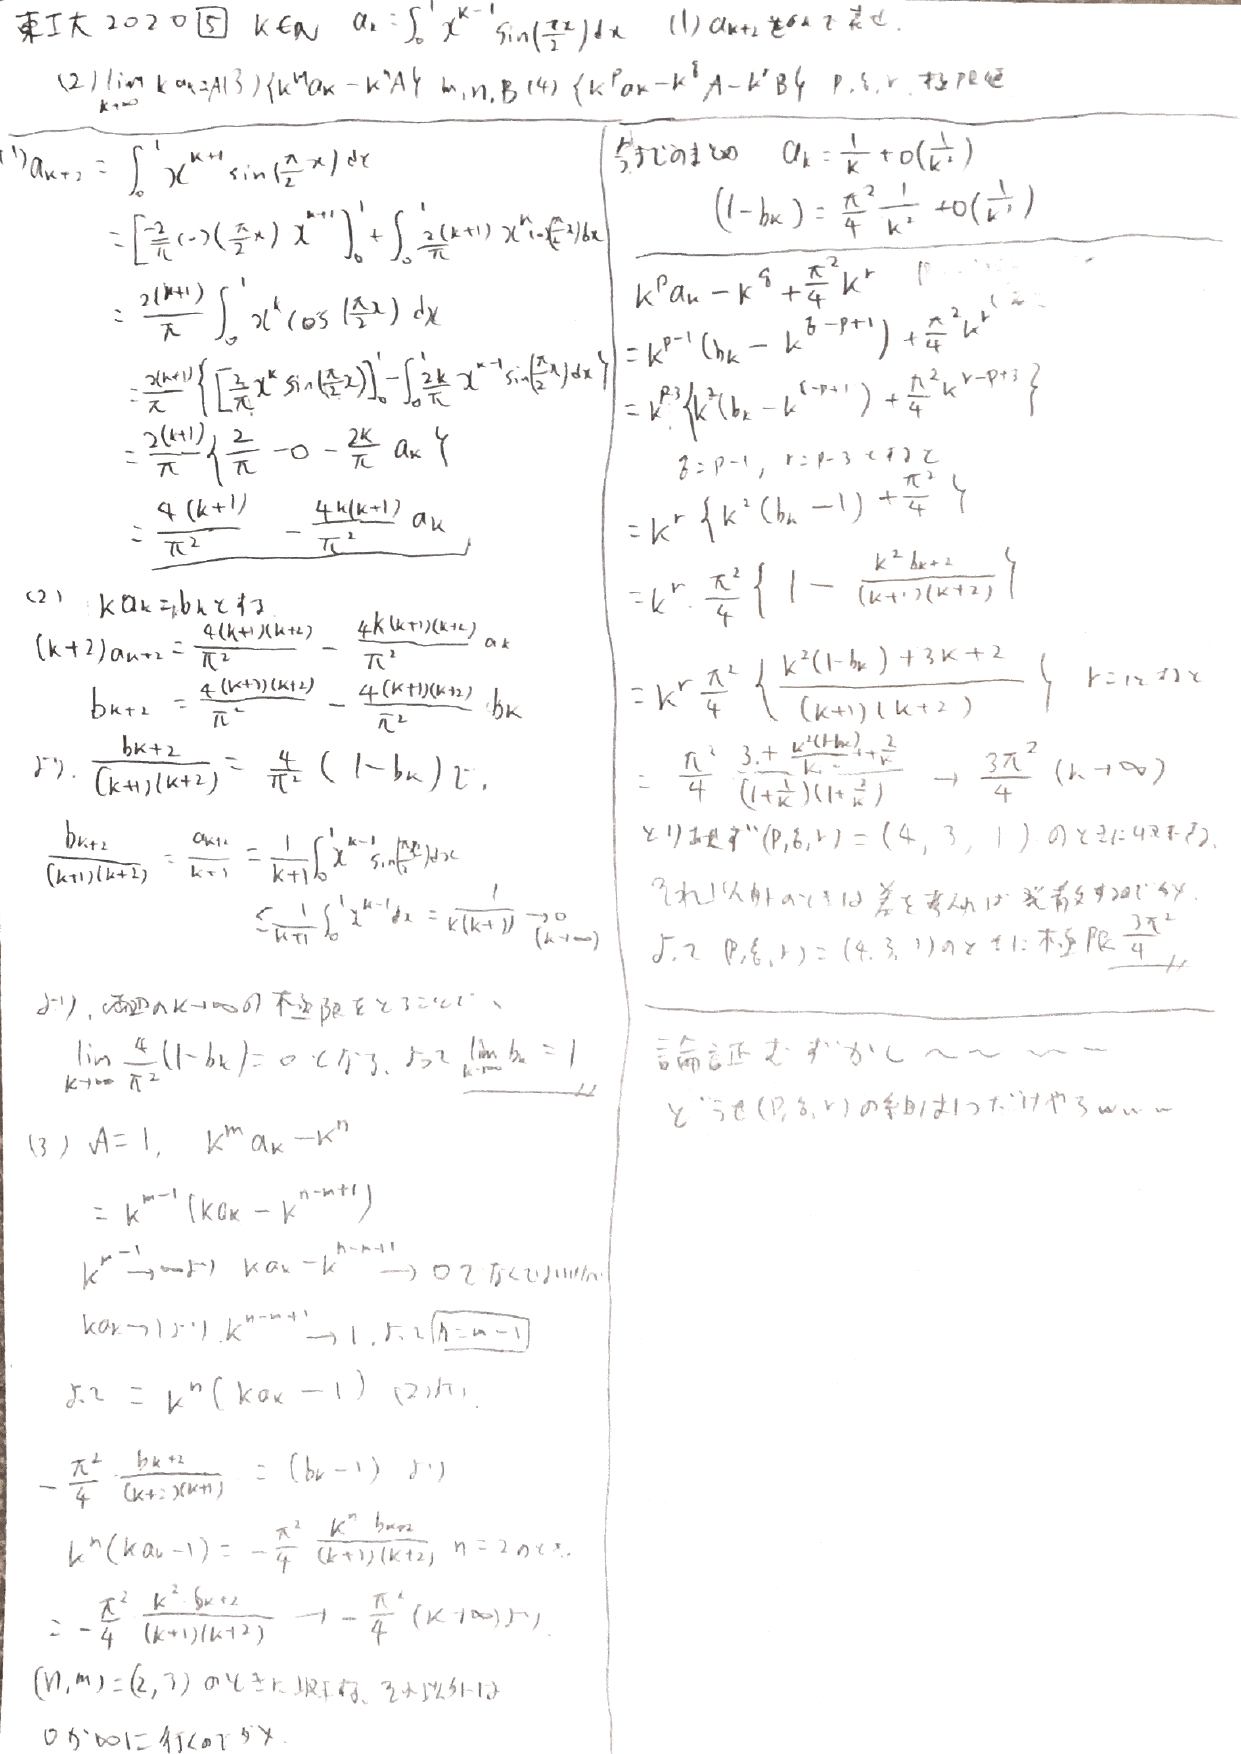 東工大 2020 5 k∈N a_k = ∫_0^1 x^{k-1} sin(πx/2) dx (1) a_{k+2} を a_k で 表せ.
(2) lim_{k→∞} k a_k = A (3) {k^m a_k - k^n A} m, n, B (4) {k^p a_k - k^q A - k^r B} p, q, r, 極限値
(1) a_{k+2} = ∫_0^1 x^{k+1} sin(π/2 x) dx
= [-2/π cos(π/2 x) x^{k+1}]_0^1 + ∫_0^1 2(k+1)/π x^k cos(π/2 x) dx
= 2(k+1)/π ∫_0^1 x^k cos(π/2 x) dx
= 2(k+1)/π { [2/π x^k sin(π/2 x)]_0^1 - ∫_0^1 2k/π x^{k-1} sin(π/2 x) dx }
= 2(k+1)/π { 2/π - 0 - 2k/π a_k }
= 4(k+1)/π² - 4k(k+1)/π² a_k
(2) k a_k = b_k とする
(k+2) a_{k+2} = 4(k+1)(k+2)/π² - 4k(k+1)(k+2)/π² a_k
b_{k+2} = 4(k+1)(k+2)/π² - 4(k+1)(k+2)/π² b_k
より. b_{k+2}/(k+1)(k+2) = 4/π² (1 - b_k) で,
b_{k+2}/(k+1)(k+2) = a_{k+2}/k+1 = 1/k+1 ∫_0^1 x^{k-1} sin(πx/2) dx
≤ 1/k+1 ∫_0^1 x^{k-1} dx = 1/k(k+1) → 0 (k→∞)
より, 両辺の k→∞ の 極限をとることで、
lim_{k→∞} 4/π² (1 - b_k) = 0 となる, よって lim_{k→∞} b_k = 1
(3) A = 1, k^m a_k - k^n
= k^{m-1} (k a_k - k^{n-m+1})
k^{m-1} → ∞ より k a_k - k^{n-m+1} → 0 でなくてはいけない
k a_k → 1 より, k^{n-m+1} → 1, よって n = m - 1
よって = k^n (k a_k - 1) (2)より,
- π²/4 b_{k+2}/(k+2)(k+1) = (b_k - 1) より
k^n (k a_k - 1) = - π²/4 k^n b_{k+2}/(k+1)(k+2) n = 2 のとき.
= - π²/4 k² b_{k+2}/(k+1)(k+2) → - π²/4 (k→∞) より
(n, m) = (2, 3) のときに 収束する, それ以外は
0 か ∞ に行くのでダメ.
今までのまとめ a_k = 1/k + o(1/k²)
(1 - b_k) = π²/4 1/k² + o(1/k²)
k^p a_k - k^q + π²/4 k^r
= k^{p-1} (b_k - k^{q-p+1}) + π²/4 k^r
= k^{p-3} { k² (b_k - k^{q-p+1}) + π²/4 k^{r-p+3} }
q = p-1, r = p-3 とすると
= k^r { k² (b_k - 1) + π²/4 }
= k^r · π²/4 { 1 - k² b_{k+2}/(k+1)(k+2) }
= k^r π²/4 { k²(1 - b_k) + 3k + 2/(k+1)(k+2) } r = 1 とすると
= π²/4 3 + k²(1-b_k)/k + 2/k/(1+1/k)(1+2/k) → 3π²/4 (k→∞)
とりあえず (p, q, r) = (4, 3, 1) のときに収束する.
それ以外のときは 差を考えれば 発散するのでダメ.
よって (p, q, r) = (4, 3, 1) のときに 極限 3π²/4
論証むずかし〜〜〜〜
どうせ (p, q, r) の組は1つだけやろwww